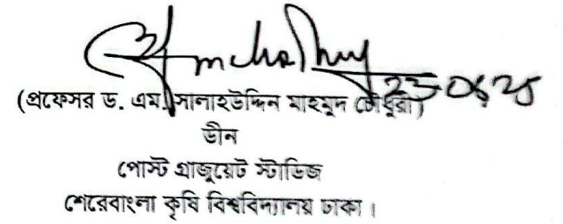 23-06-25
(প্রফেসর ড. এম. সালাহউদ্দিন মাহমুদ চৌধুরী)
ডীন
পোস্ট গ্রাজুয়েট স্টাডিজ
শেরেবাংলা কৃষি বিশ্ববিদ্যালয় ঢাকা।